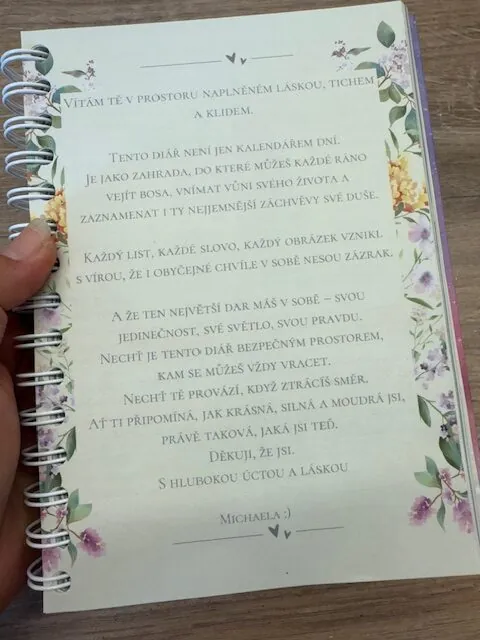 Vítám tě v prostoru naplněném láskou, tichem
a klidem.
Tento diář není jen kalendářem dní.
Je jako zahrada, do které můžeš každé ráno
vejít bosa, vnímat vůni svého života a
zaznamenat i ty nejjemnější záchvěvy své duše.
Každý list, každé slovo, každý obrázek vznikl
s vírou, že i obyčejné chvíle v sobě nesou zázrak.
A že ten největší dar máš v sobě – svou
jedinečnost, své světlo, svou pravdu.
Nechť je tento diář bezpečným prostorem,
kam se můžeš vždy vracet.
Nechť tě provází, když ztrácíš směr.
Ať ti připomíná, jak krásná, silná a moudrá jsi,
právě taková, jaká jsi teď.
Děkuji, že jsi.
S hlubokou úctou a láskou
Michaela :)